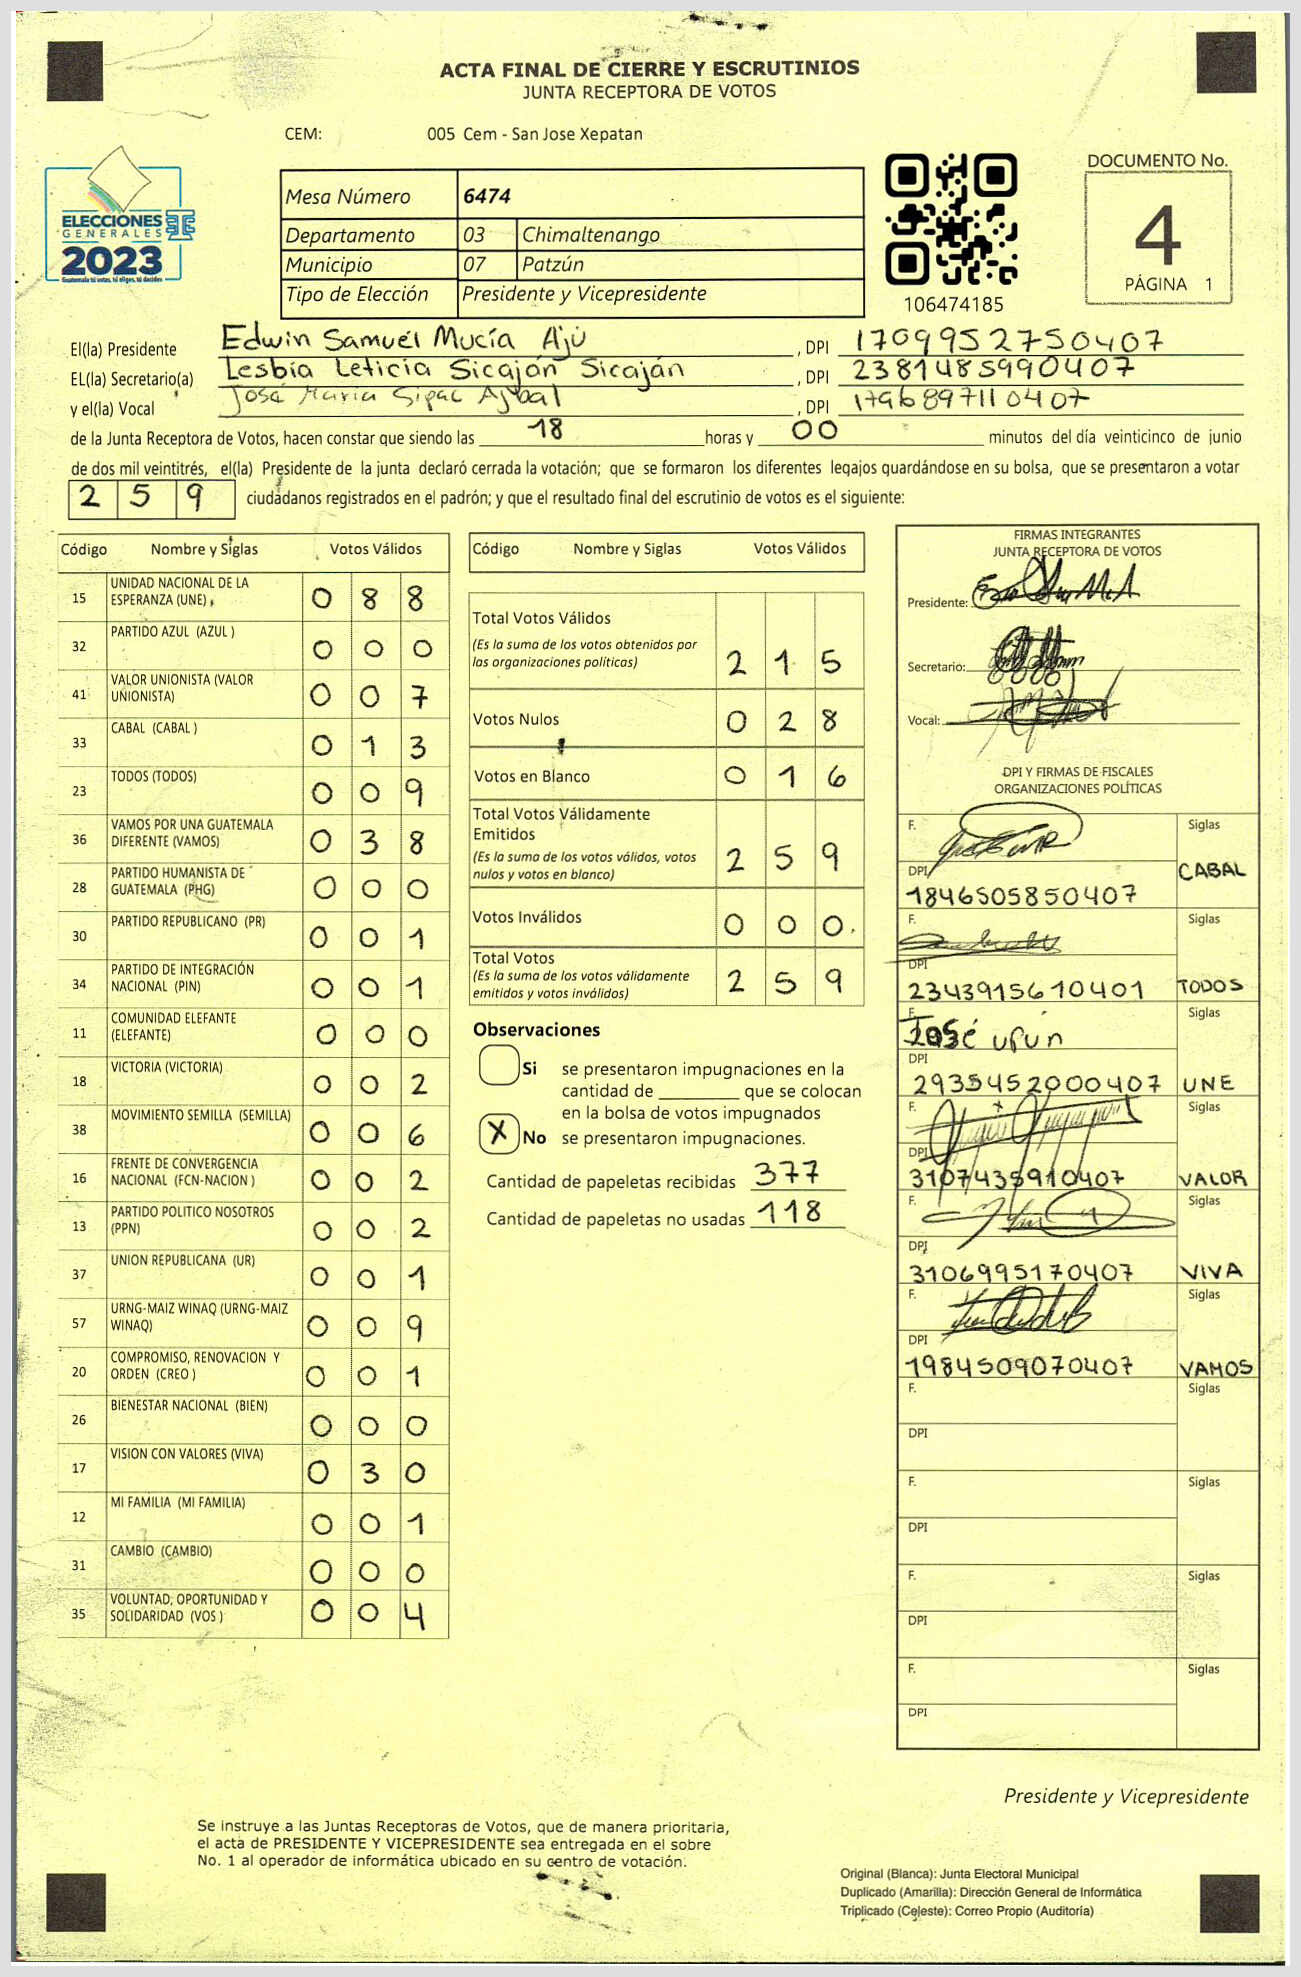 ACTA FINAL DE CIERRE Y ESCRUTINIOS
JUNTA RECEPTORA DE VOTOS
CEM: 005 Cem - San Jose Xepatan
ELECCIONES
GENERALES
2023
Guatemala tú votas, tú eliges, tú decides
Mesa Número 6474
Departamento 03 Chimaltenango
Municipio 07 Patzún
Tipo de Elección Presidente y Vicepresidente
106474185
DOCUMENTO No.
4
PÁGINA 1
El(la) Presidente Edwin Samuel Mucía Ajú , DPI 1709952750407
EL(la) Secretario(a) Lesbia Leticia Sicaján Sicaján , DPI 2381485990407
y el(la) Vocal José María Sipac Ajbal , DPI 1796897110407
de la Junta Receptora de Votos, hacen constar que siendo las 18 horas y 00 minutos del día veinticinco de junio
de dos mil veintitrés, el(la) Presidente de la junta declaró cerrada la votación; que se formaron los diferentes legajos guardándose en su bolsa, que se presentaron a votar
2 5 9 ciudadanos registrados en el padrón; y que el resultado final del escrutinio de votos es el siguiente:
Código Nombre y Siglas Votos Válidos
15 UNIDAD NACIONAL DE LA
ESPERANZA (UNE) 0 8 8
32 PARTIDO AZUL (AZUL ) 0 0 0
41 VALOR UNIONISTA (VALOR
UNIONISTA) 0 0 7
33 CABAL (CABAL ) 0 1 3
23 TODOS (TODOS) 0 0 9
36 VAMOS POR UNA GUATEMALA
DIFERENTE (VAMOS) 0 3 8
28 PARTIDO HUMANISTA DE
GUATEMALA (PHG) 0 0 0
30 PARTIDO REPUBLICANO (PR) 0 0 1
34 PARTIDO DE INTEGRACIÓN
NACIONAL (PIN) 0 0 1
11 COMUNIDAD ELEFANTE
(ELEFANTE) 0 0 0
18 VICTORIA (VICTORIA) 0 0 2
38 MOVIMIENTO SEMILLA (SEMILLA) 0 0 6
16 FRENTE DE CONVERGENCIA
NACIONAL (FCN-NACION ) 0 0 2
13 PARTIDO POLITICO NOSOTROS
(PPN) 0 0 2
37 UNION REPUBLICANA (UR) 0 0 1
57 URNG-MAIZ WINAQ (URNG-MAIZ
WINAQ) 0 0 9
20 COMPROMISO, RENOVACION Y
ORDEN (CREO ) 0 0 1
26 BIENESTAR NACIONAL (BIEN) 0 0 0
17 VISION CON VALORES (VIVA) 0 3 0
12 MI FAMILIA (MI FAMILIA) 0 0 1
31 CAMBIO (CAMBIO) 0 0 0
35 VOLUNTAD, OPORTUNIDAD Y
SOLIDARIDAD (VOS ) 0 0 4
Código Nombre y Siglas Votos Válidos
Total Votos Válidos
(Es la suma de los votos obtenidos por
las organizaciones políticas) 2 1 5
Votos Nulos 0 2 8
Votos en Blanco 0 1 6
Total Votos Válidamente
Emitidos
(Es la suma de los votos válidos, votos
nulos y votos en blanco) 2 5 9
Votos Inválidos 0 0 0.
Total Votos
(Es la suma de los votos válidamente
emitidos y votos inválidos) 2 5 9
Observaciones
Si se presentaron impugnaciones en la
cantidad de ________ que se colocan
en la bolsa de votos impugnados
X No se presentaron impugnaciones.
Cantidad de papeletas recibidas 377
Cantidad de papeletas no usadas 118
FIRMAS INTEGRANTES
JUNTA RECEPTORA DE VOTOS
Presidente:
Secretario:
Vocal:
DPI Y FIRMAS DE FISCALES
ORGANIZACIONES POLÍTICAS
F. Siglas
DPI 1846505850407 CABAL
F. Siglas
DPI 2343915610401 TODOS
F. José Siglas
DPI 2935452000407 UNE
F. Siglas
DPI 3107435910407 VALOR
F. Siglas
DPI 3106995170407 VIVA
F. Siglas
DPI 1984509070407 VAMOS
F. Siglas
DPI
F. Siglas
DPI
F. Siglas
DPI
F. Siglas
DPI
Presidente y Vicepresidente
Se instruye a las Juntas Receptoras de Votos, que de manera prioritaria,
el acta de PRESIDENTE Y VICEPRESIDENTE sea entregada en el sobre
No. 1 al operador de informática ubicado en su centro de votación.
Original (Blanca): Junta Electoral Municipal
Duplicado (Amarilla): Dirección General de Informática
Triplicado (Celeste): Correo Propio (Auditoría)